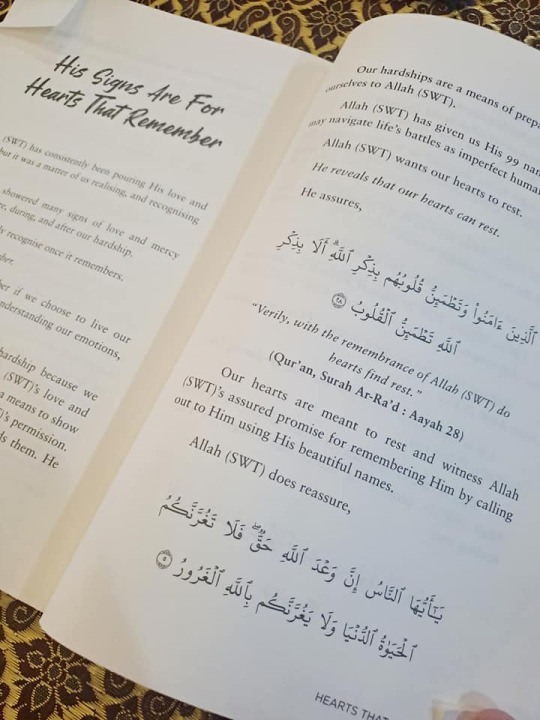 His Signs Are For
Hearts That Remember
(SWT) has consistently been pouring His love and
but it was a matter of us realising, and recognising
showered many signs of love and mercy
re, during, and after our hardship.
ly recognise once it remembers.
ber if we choose to live our
understanding our emotions,
hardship because we
(SWT)'s love and
a means to show
)'s permission.
ds them. He
Our hardships are a means of prepa
ourselves to Allah (SWT).
Allah (SWT) has given us His 99 nam
may navigate life's battles as imperfect human
Allah (SWT) wants our hearts to rest.
He reveals that our hearts can rest.
He assures,
ٱلَّذِينَ ءَامَنُوا۟ وَتَطْمَئِنُّ قُلُوبُهُم بِذِكْرِ ٱللَّهِ ۗ أَلَا بِذِكْرِ
ٱللَّهِ تَطْمَئِنُّ ٱلْقُلُوبُ ٢٨
"Verily, with the remembrance of Allah (SWT) do
hearts find rest."
(Qur'an, Surah Ar-Ra'd : Aayah 28)
Our hearts are meant to rest and witness Allah
(SWT)'s assured promise for remembering Him by calling
out to Him using His beautiful names.
Allah (SWT) does reassure,
يَـٰٓأَيُّهَا ٱلنَّاسُ إِنَّ وَعْدَ ٱللَّهِ حَقٌّ ۖ فَلَا تَغُرَّنَّكُمُ
ٱلْحَيَوٰةُ ٱلدُّنْيَا وَلَا يَغُرَّنَّكُم بِٱللَّهِ ٱلْغَرُورُ ٥
HEARTS THAT